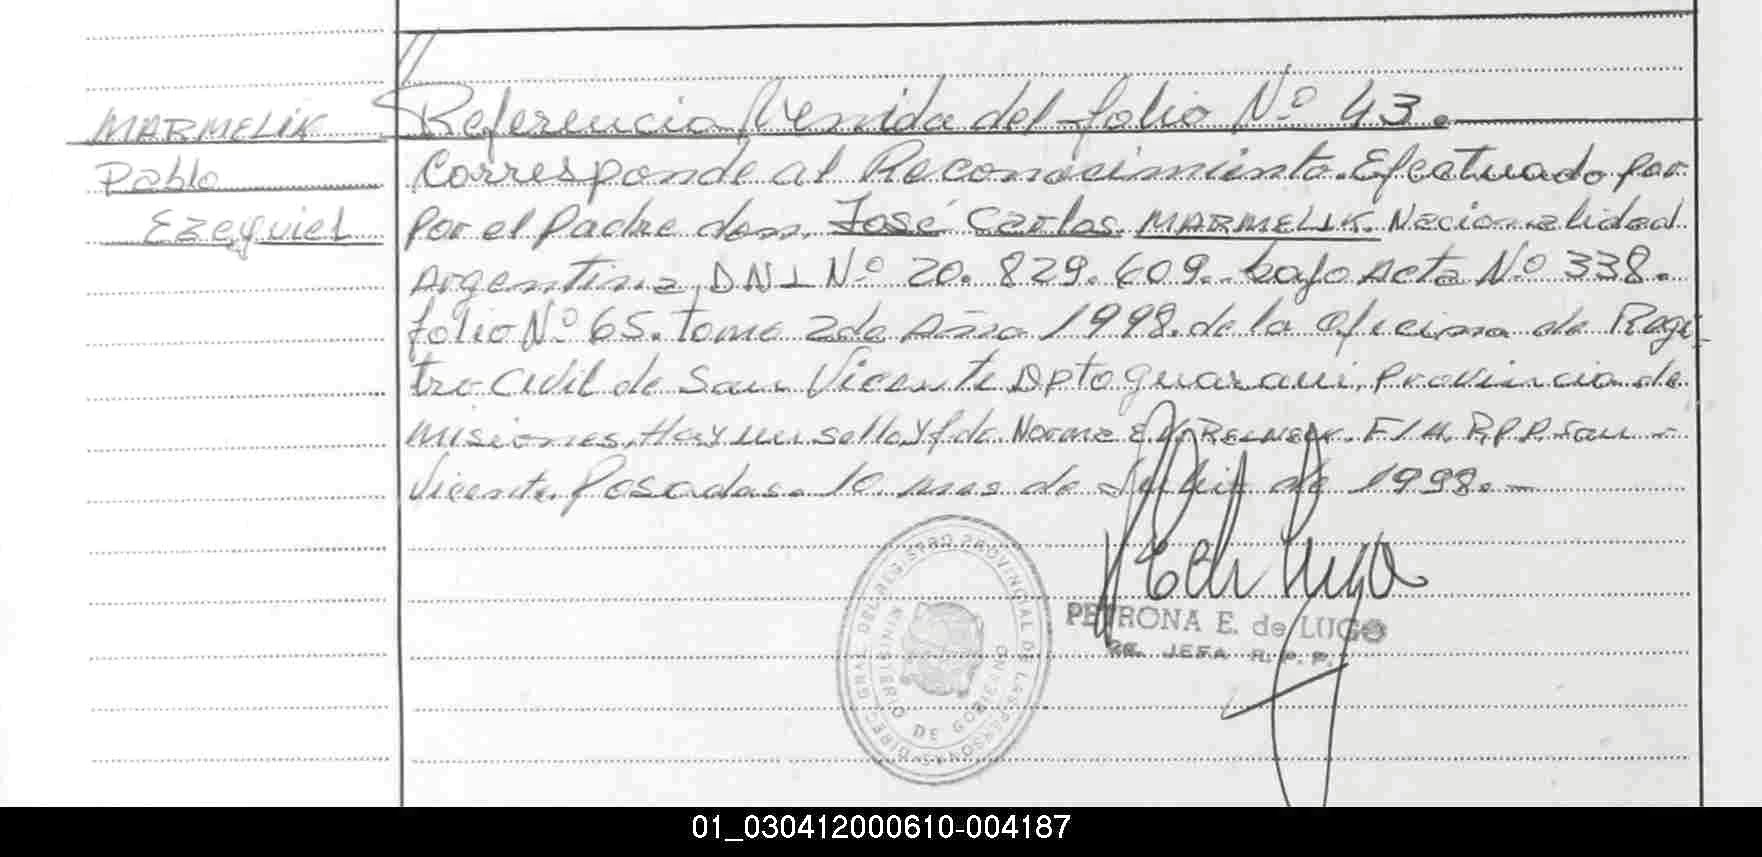 //
MARMELIK
Pablo
Ezequiel
Referencia Venida del folio Nº 43.
Corresponde al Reconocimiento Efectuado por
por el Padre don José Carlos MARMELIK Nacionalidad
Argentina, DNI Nº 20.829.609. bajo Acta Nº 338.
folio Nº 65. tomo 2do Año 1998. de la Oficina de Regis
tro Civil de San Vicente Dpto guarani, Provincia de
Misiones, Hay un sello y fdo. Norma E. F/M. R.P.P. San -
Vicente. Posadas. 10 mes de de 1998. -
DIREC. GRAL. DEL REGISTRO PROVINCIAL DE LAS PERSONAS
MINISTERIO DE GOBIERNO
PETRONA E. de LUGO
JEFA R. P. P.
01_030412000610-004187